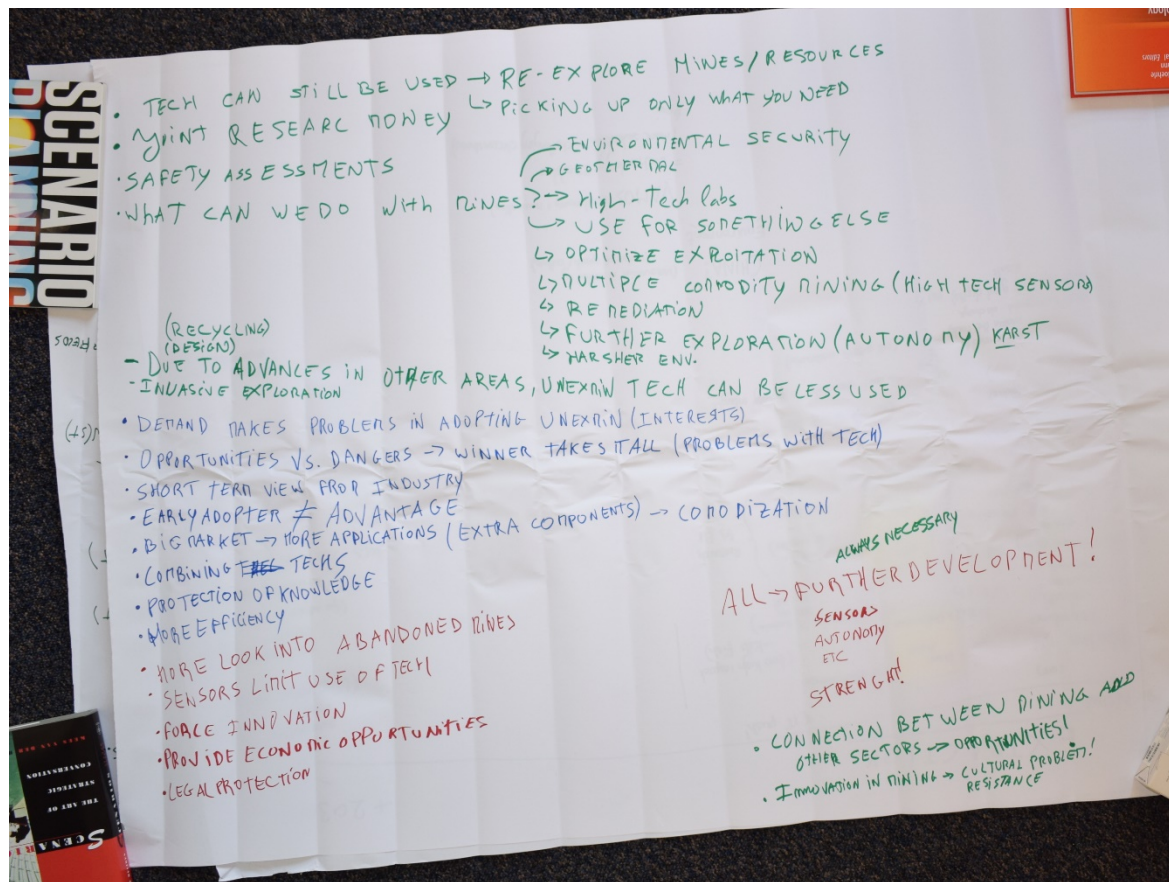 · TECH CAN STILL BE USED → RE-EXPLORE MINES/RESOURCES
↳ PICKING UP ONLY WHAT YOU NEED
· JOINT RESEARC MONEY
· SAFETY ASSESSMENTS
· WHAT CAN WE DO WITH MINES?
→ ENVIRONMENTAL SECURITY
→ GEOTHERMAL
→ HIGH-TECH LABS
→ USE FOR SOMETHING ELSE
↳ OPTIMIZE EXPLOITATION
↳ MULTIPLE COMMODITY MINING (HIGH TECH SENSORS)
↳ REMEDIATION
↳ FURTHER EXPLORATION (AUTONOMY) KARST
↳ HARSHER ENV.
(RECYCLING)
(DESIGN)
- DUE TO ADVANCES IN OTHER AREAS, UNEXMIN TECH CAN BE LESS USED
- INVASIVE EXPLORATION
· DEMAND MAKES PROBLEMS IN ADOPTING UNEXMIN (INTERESTS)
· OPPORTUNITIES VS. DANGERS → WINNER TAKES IT ALL (PROBLEMS WITH TECH)
· SHORT TERM VIEW FROM INDUSTRY
· EARLY ADOPTER ≠ ADVANTAGE
· BIG MARKET → MORE APPLICATIONS (EXTRA COMPONENTS) → COMODIZATION
· COMBINING TECHS
· PROTECTION OF KNOWLEDGE
· MORE EFFICIENCY
· MORE LOOK INTO ABANDONED MINES
· SENSORS LIMIT USE OF TECH
· FORCE INNOVATION
· PROVIDE ECONOMIC OPPORTUNITIES
· LEGAL PROTECTION
ALWAYS NECESSARY
ALL → FURTHER DEVELOPMENT!
SENSORS
AUTONOMY
ETC
STRENGHT!
· CONNECTION BETWEEN MINING AND
OTHER SECTORS → OPPORTUNITIES!
· INNOVATION IN MINING → CULTURAL PROBLEM!
RESISTANCE
SCENARIO
PLANNING
THE ART OF
STRATEGIC
CONVERSATION